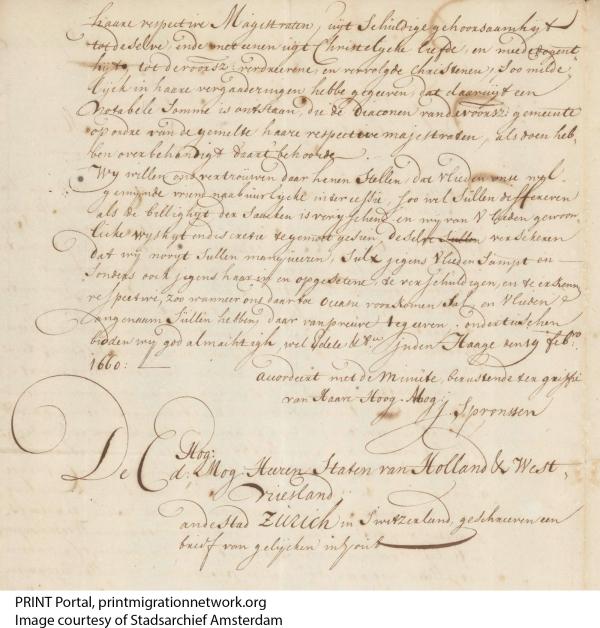 haare respective Magestraten, uijt schuldige gehoorsaamhijt
totdeselve, ende met eenen uijt Christelycke liefde, en meededogent
hijt tot devoorsz: verdreevene, en vervolgde Christenen, soo milde
lijck in haare vergaaderingen hebbe gegeeven, dat daaruijt een
Notabele Somme is ontstaan, die de Diaconen vandevoorsz: gemeente
op ordre van de gemelte haare respective majestraten, alsdoen heb
ben overbehandigt daar 't behoorde
Wy willen ons vertrouwen daar henen stellen, dat Vlieden onse wel
gemeijnde vriend naabuurlycke intercessie, soo wel sullen defereren
als de billighijt der saacken is verijschende, en wij van V lieden gewoon
licke wijshijt en discretie tegemoet gesien, deselve sullen versekeren
dat wij nooijt sullen manqueeren, sulx jegens Vlieden sampt en
sonders oock jegens haar in en opgesetene, te verschuldigen, en te erkenn
respective, zoo wanneer ons daar toe occasie voorkomen sal en Vlieden
aangenaam sullen hebben, daar van preuve te geeven, ondertusschen
bidden wij god almachtigh, wel Edele &
inden Haage den 19 feb:
1660:
Accordeert met de Minute, berustende ter griffie
van Haare Hoog Mog:
J. Spronssen
De Ed: Hog:
Mog Heeren Staten van Holland & West
Vriesland
ande stad Zürich in Switzerland, geschreeven een
brief van gelijcken inhout
PRINT Portal, printmigrationnetwork.org
Image courtesy of Stadsarchief Amsterdam